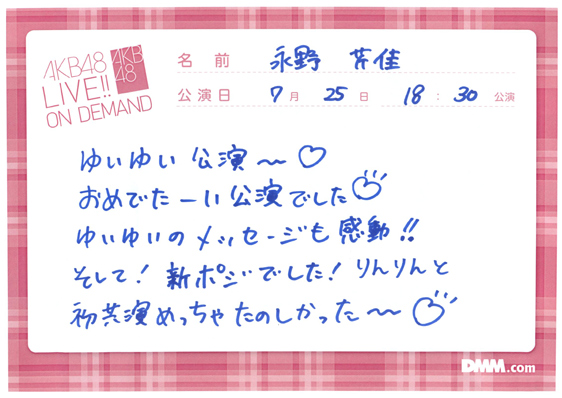 AKB48
LIVE!!
ON DEMAND
AKB
48
名前 永野 芹佳
公演日 7月 25日 18:30 公演
ゆいゆい公演〜♡
おめでたーい公演でした♡
ゆいゆいのメッセージも感動!!
そして!新ポジでした!りんりんと
初共演めっちゃたのしかった〜♡
DMM.com